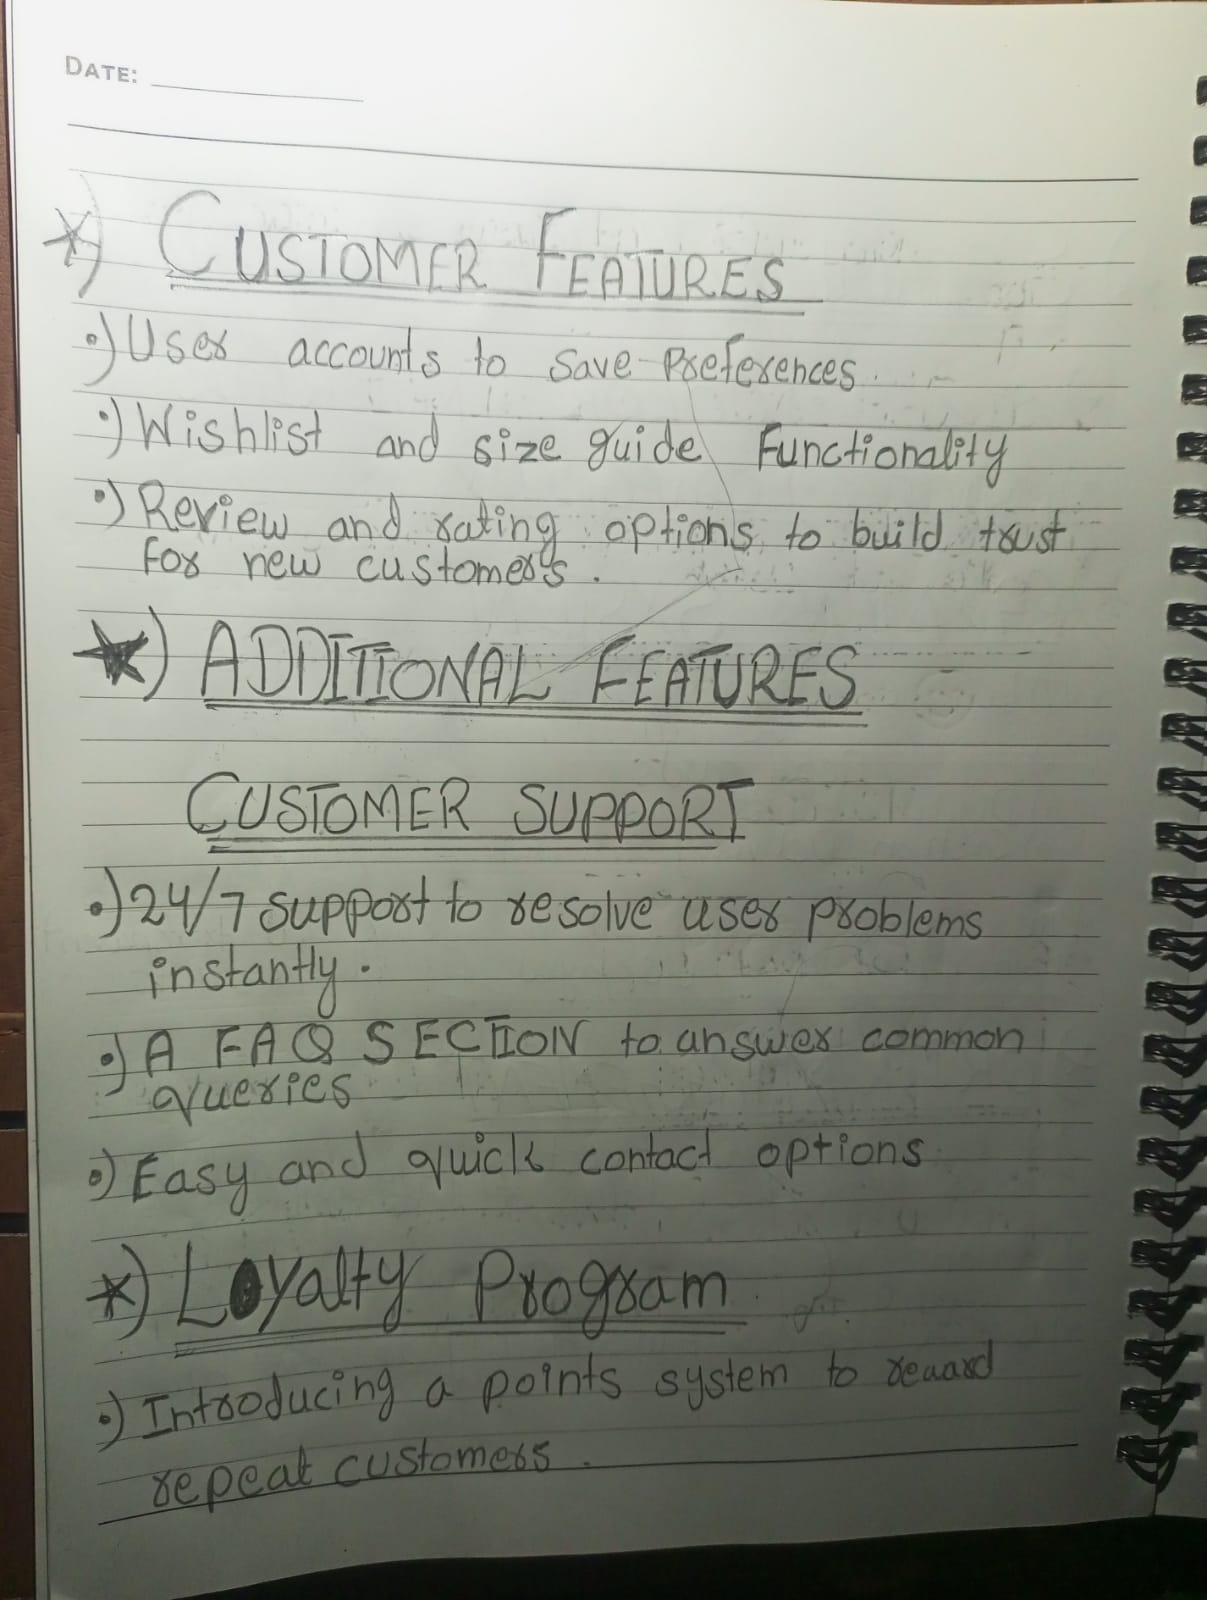 DATE:
*) CUSTOMER FEATURES
•) User accounts to save Preferences.
•) Wishlist and size guide Functionality
•) Review and rating options to build trust
for new customers.
*) ADDITIONAL FEATURES
CUSTOMER SUPPORT
•) 24/7 support to resolve user problems
instantly.
•) A FAQ SECTION to answer common
queries
•) Easy and quick contact options
*) Loyalty Program
•) Introducing a points system to reward
repeat customers.